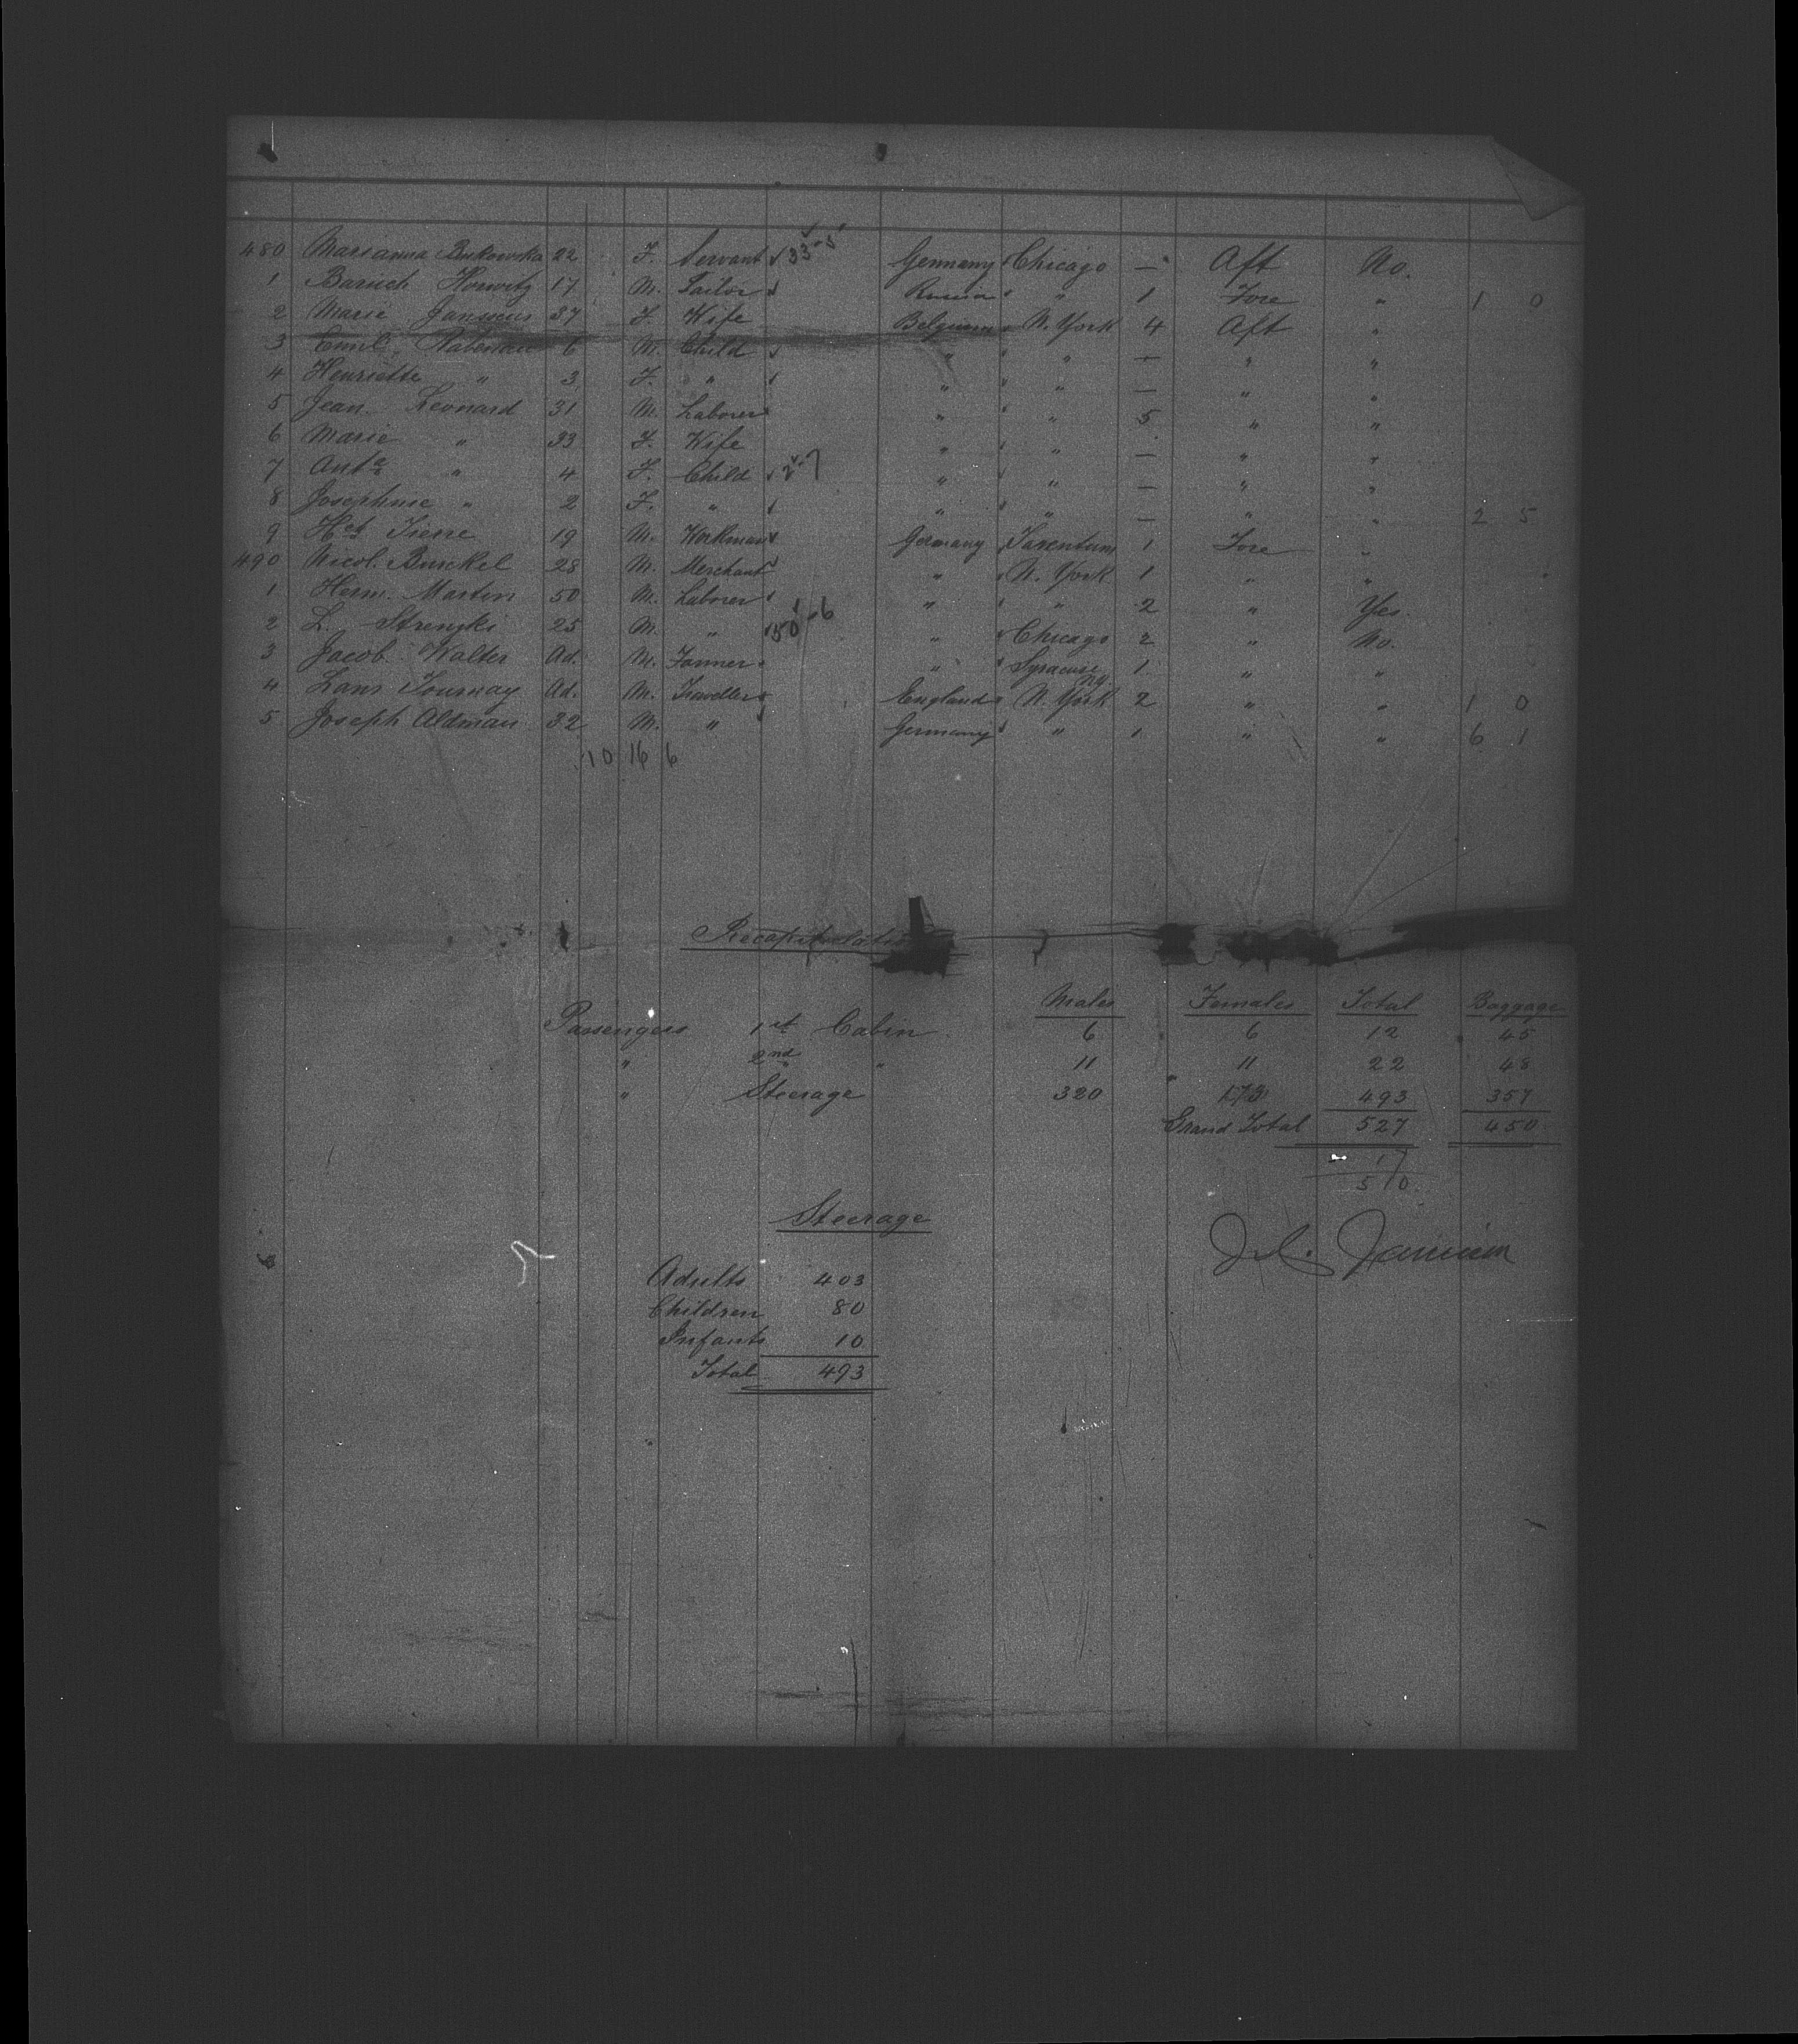 480 Marianna Bukowska 22 F. Servant 33-5 Germany Chicago — Aft No.
1 Baruch Horwitz 17 M. Tailor Russia " 1 Fore " 1 0
2 Marie Janssens 37 F. Wife Belgium N. York 4 Aft "
3 Emil 6 M. Child " " — " "
4 Henriette " 3 F. " " " — " "
5 Jean Leonard 31 M. Laborer " " 5 " "
6 Marie " 33 F. Wife " " — " "
7 " 4 F. Child 2-7 " " — " "
8 Josephine " 2 F. " " " — " " 2 5
9 19 M. Workman Germany Tarentum 1 Fore "
490 Nicol. Burckel 28 M. Merchant " N. York 1 " "
1 Herm. Martin 50 M. Laborer " " 2 " Yes.
2 L. 25 M. " 50-6 " Chicago 2 " No.
3 Jacob Walter Ad. M. Farmer " Syracuse N.Y. 1 " "
4 Tournay Ad. M. Traveller England N. York 2 " " 1 0
5 Joseph Aldman 32 M. " Germany " 1 " " 6 1
10 16 6
Recapitulation
Males Females Total Baggage
Passengers 1st Cabin 6 6 12 45
" 2nd " 11 11 22 48
" Steerage 320 173 493 357
Grand Total 527 450
17
510
Steerage
Adults 403
Children 80
Infants 10
Total 493